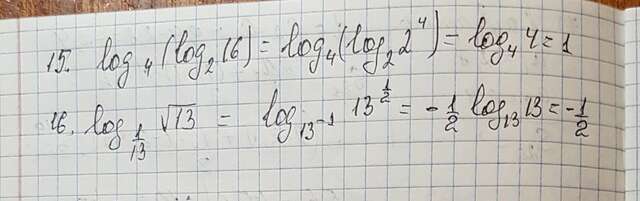 15. log₄(log₂16) = log₄(log₂2⁴) = log₄4 = 1
16. log_{1/13} √13 = log_{13⁻¹} 13^{1/2} = -1/2 log₁₃13 = -1/2